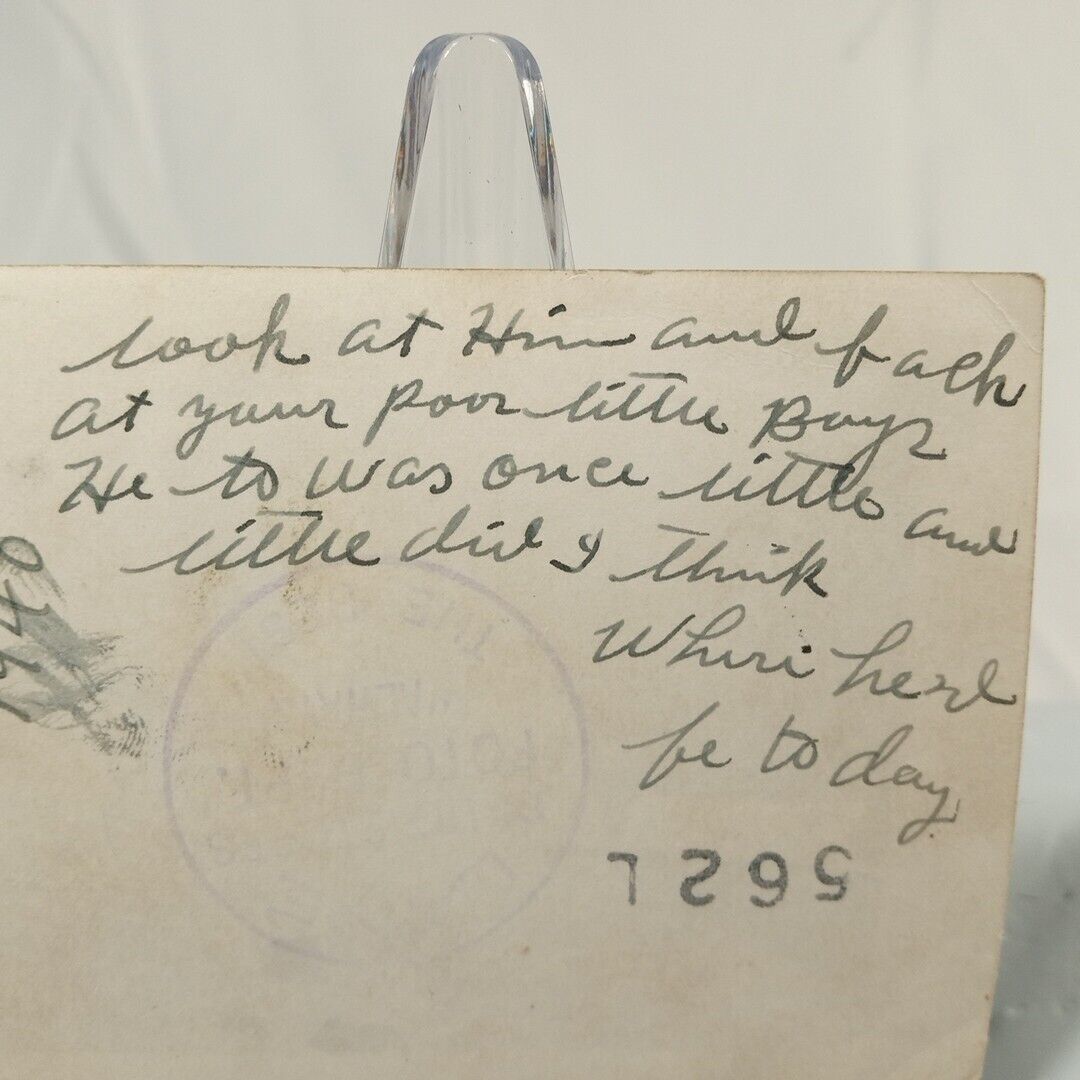 look at Him and back
at your poor little Boys
He to was once little and
little did I think
Where he'd
be to day
1940
562L